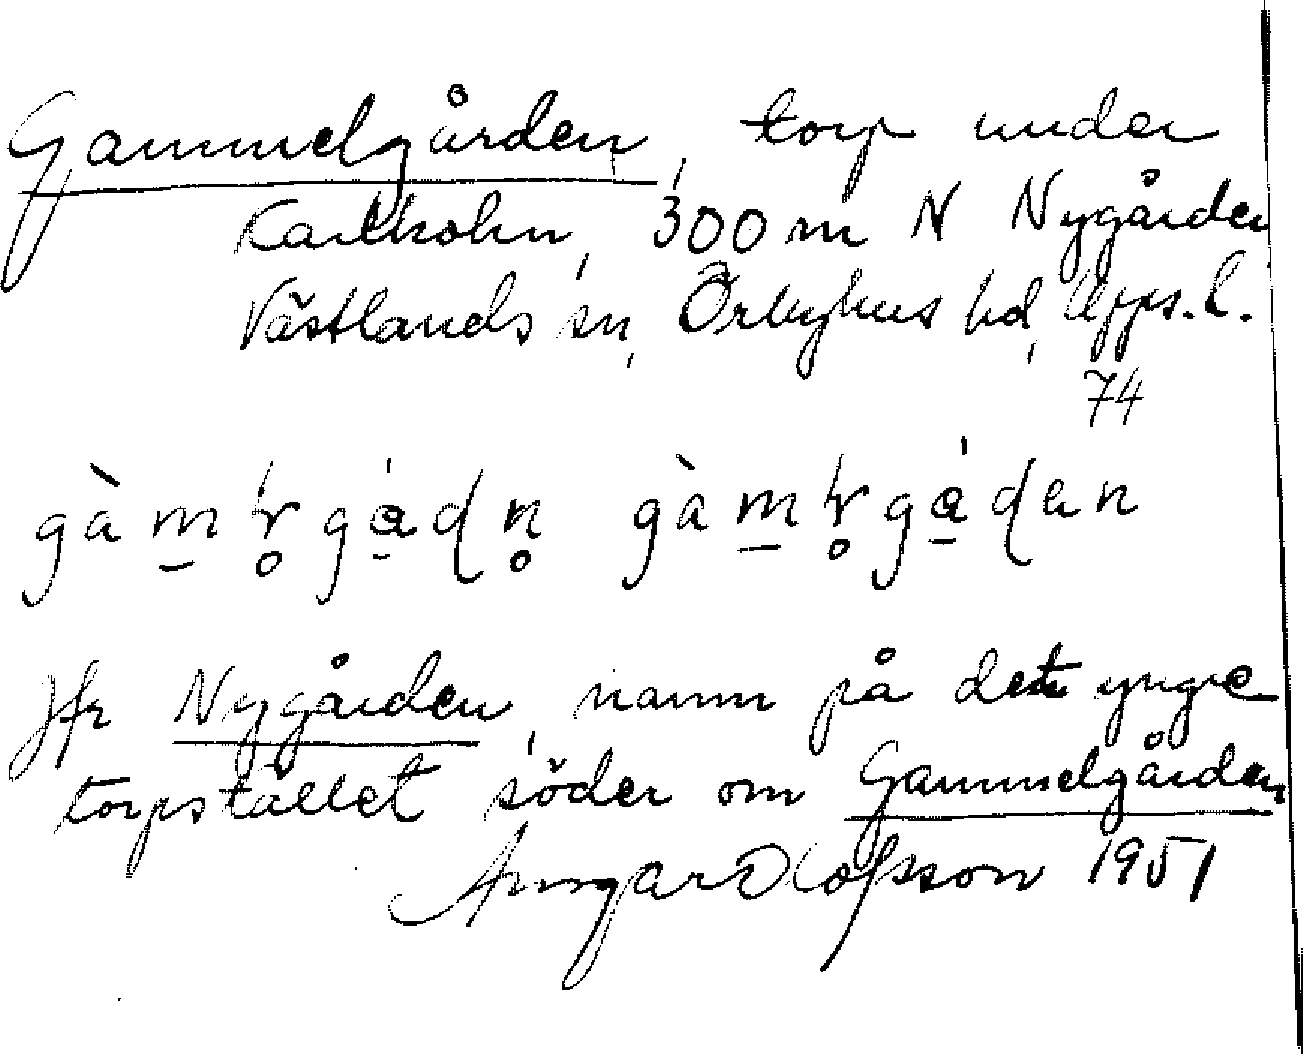 Gammelgården, torp under
Karlholm, 300 m N Nygården
Västlands sn, Örbyhus hd, Upps. l.
74
Jfr Nygården, namn på det yngre
torpstället söder om Gammelgården
Ansgar Olofsson 1951